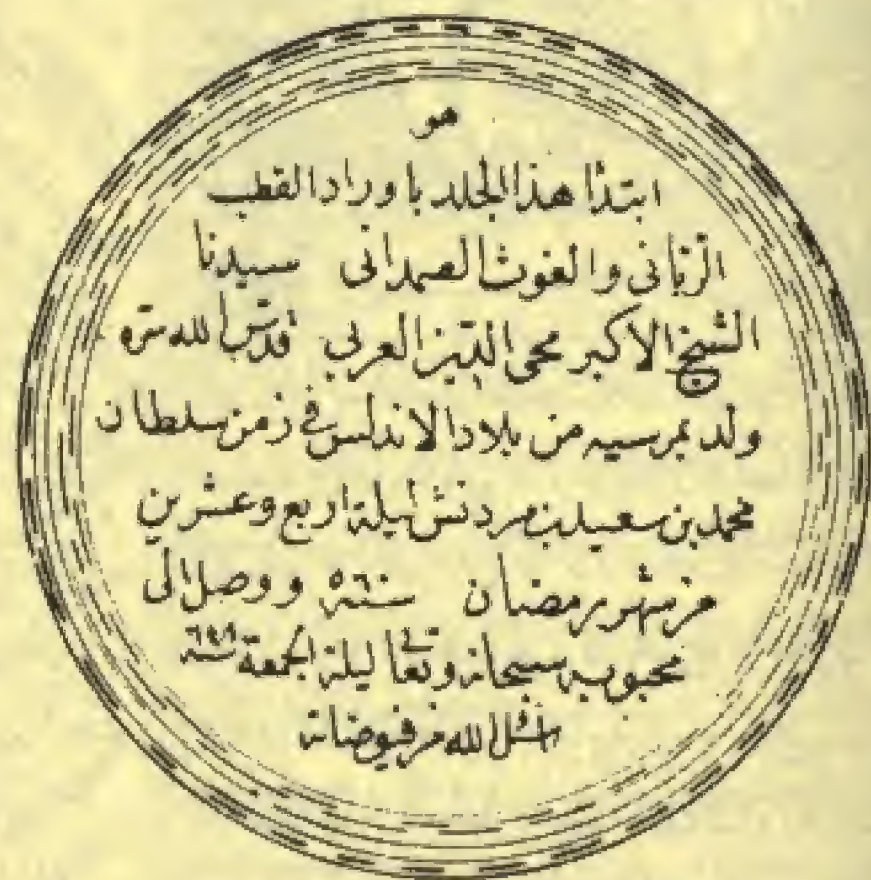 هو
ابتدأ هذا المجلد باوراد القطب
الرباني والغوث الصمداني سيدنا
الشيخ الاكبر محي الدين العربي قدس الله سره
ولد بمرسيه من بلاد الاندلس في زمن سلطان
محمد بن سعيد بن مردنش ليلة اربع وعشرين
من شهر رمضان سنة ٥٦٠ ووصل الى
محبوبه سبحانه وتعالى ليلة الجمعة سنة
الله من فيوضاته